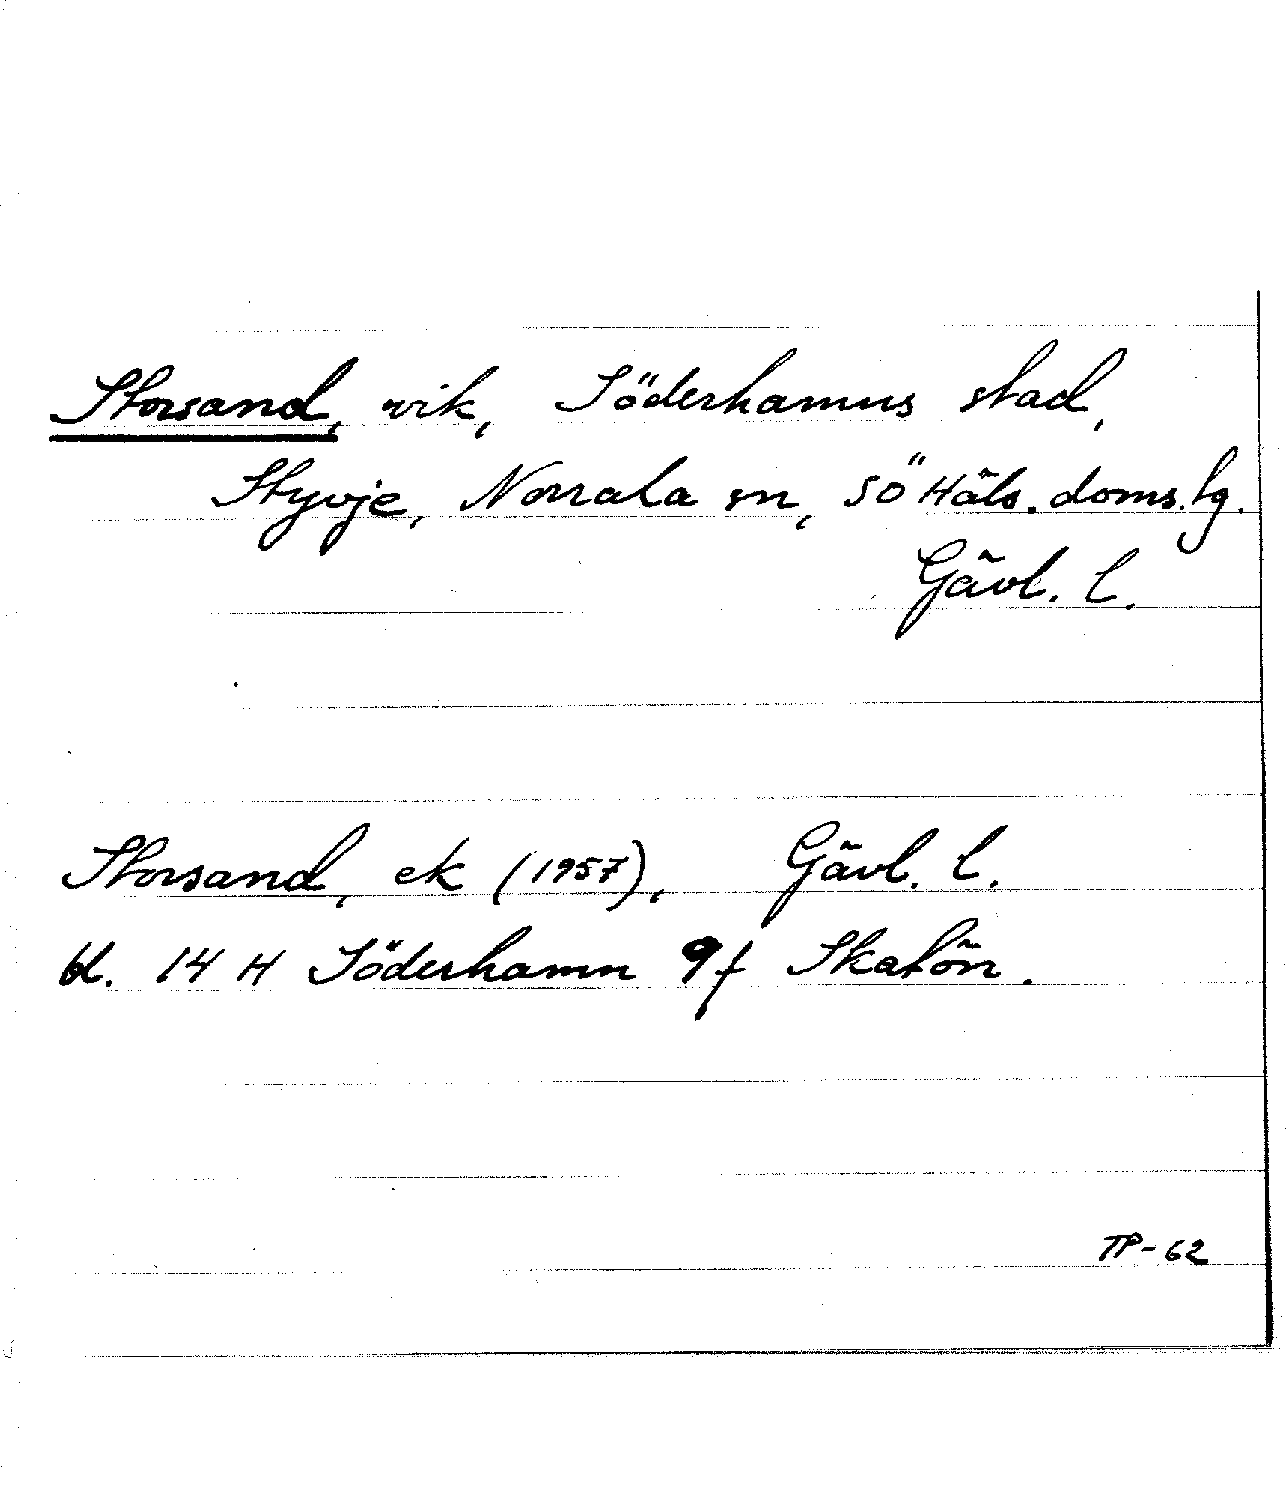 Storsand, vik, Söderhamns stad,
Styvje, Norrala sn, SÖ Häls. doms.lg.
Gävl. l.
Storsand, ek (1957), Gävl. l.
bl. 14 H Söderhamn 9f Skatön.
TP-62